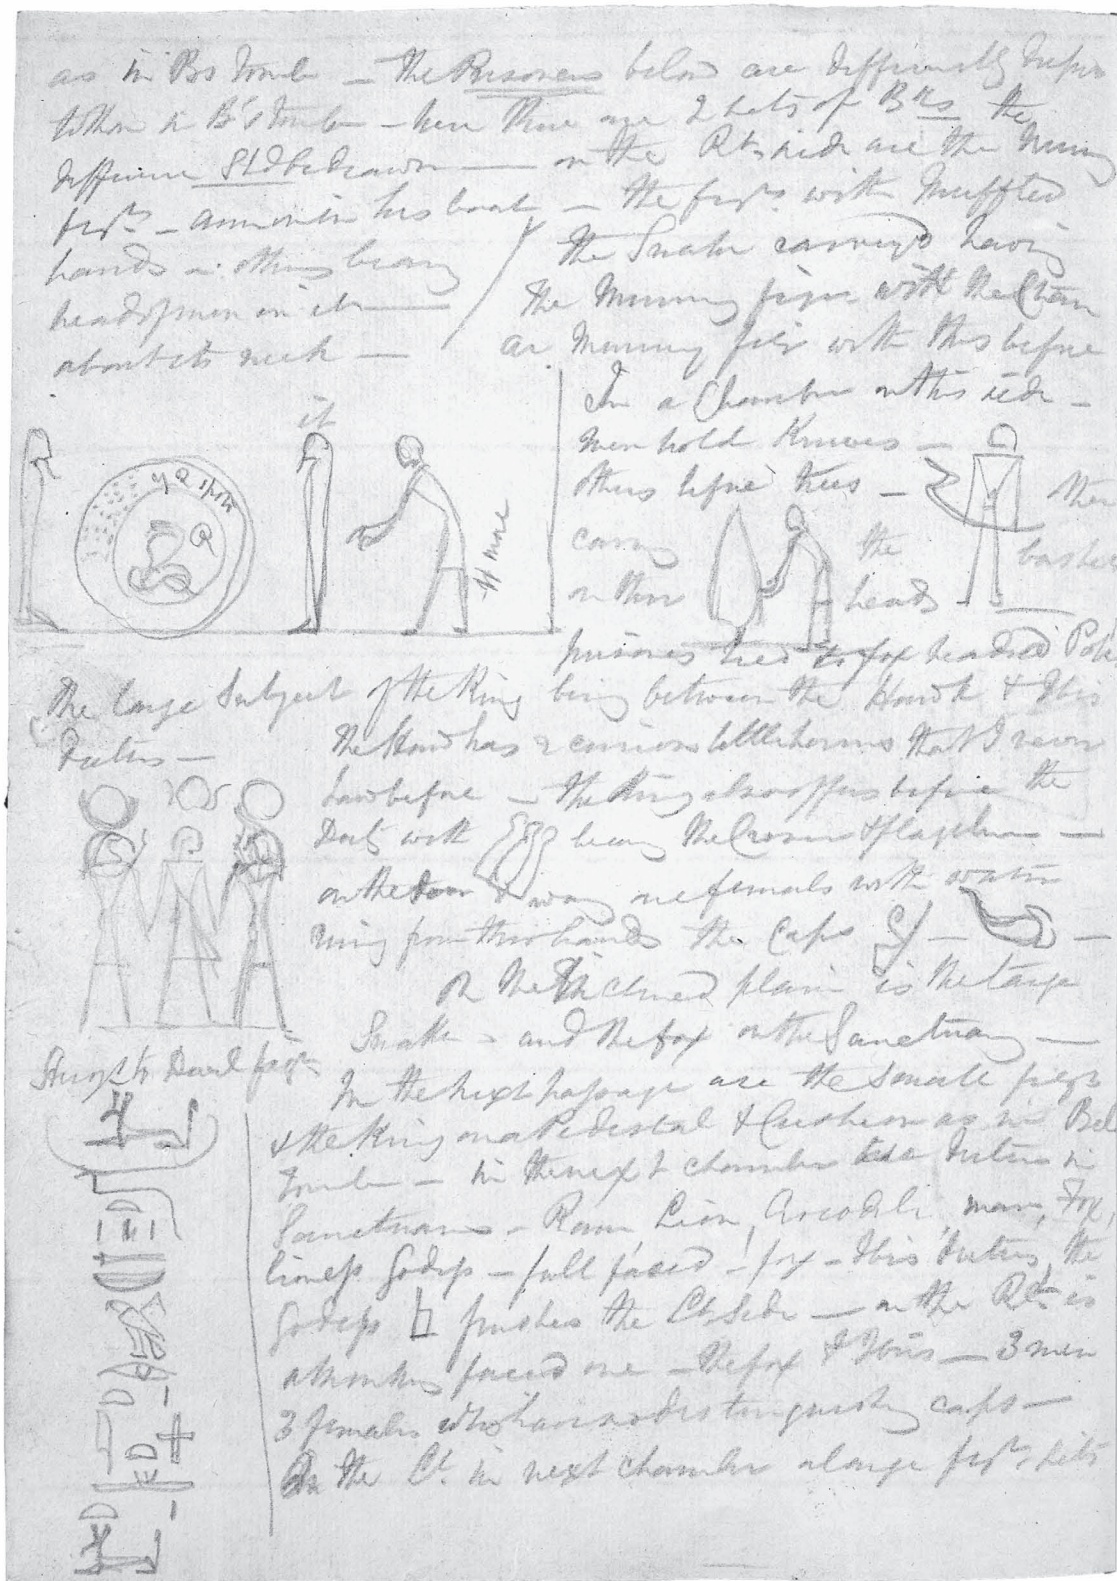 as in Bs Tomb — the Prisoners below are differently
to those in B's Tomb — here there are 2 Sets of the
difference Shd be drawn — on the Rt side are the Mummy
figrs — ammon in his boat — the figrs with Muffled
hands — others being
heads of men on it —
about its neck —
the Snake carried having
the Mummy figure with the Chain
or Mummy figr with this before
it
4 more
In a Chamber on this side —
Men hold Knives —
others before trees — others
carry the basket
on their heads —
prisoners tied to fox headed Pole
The large Subject of the King being between the Hawk & Ibis
Deities —
the Hawk has 2 curious little horns that I never
saw before — the King also offers before the
Deity with being the Crosier & flagellum —
on the door way are females with water
from their hands the Caps —
On the Inclined plain is the large
Snake — and the fox on the Sanctuary —
In the next passage are the small figrs
& the King on a Pedestal & Cushion as in Bel
Tomb — in the next chamber are Deities in
Sanctuaries — Ram, Lion, Crocodile, man, Fox,
lioness Godess — full faced — fox — Ibis Deities, the
Godess finishes the Lt Side — on the Rt is
a Monkey faced one — the fox & Ibis — 3 men
3 females who have no distinguishing caps —
On the Lt in next chamber a large figr sits